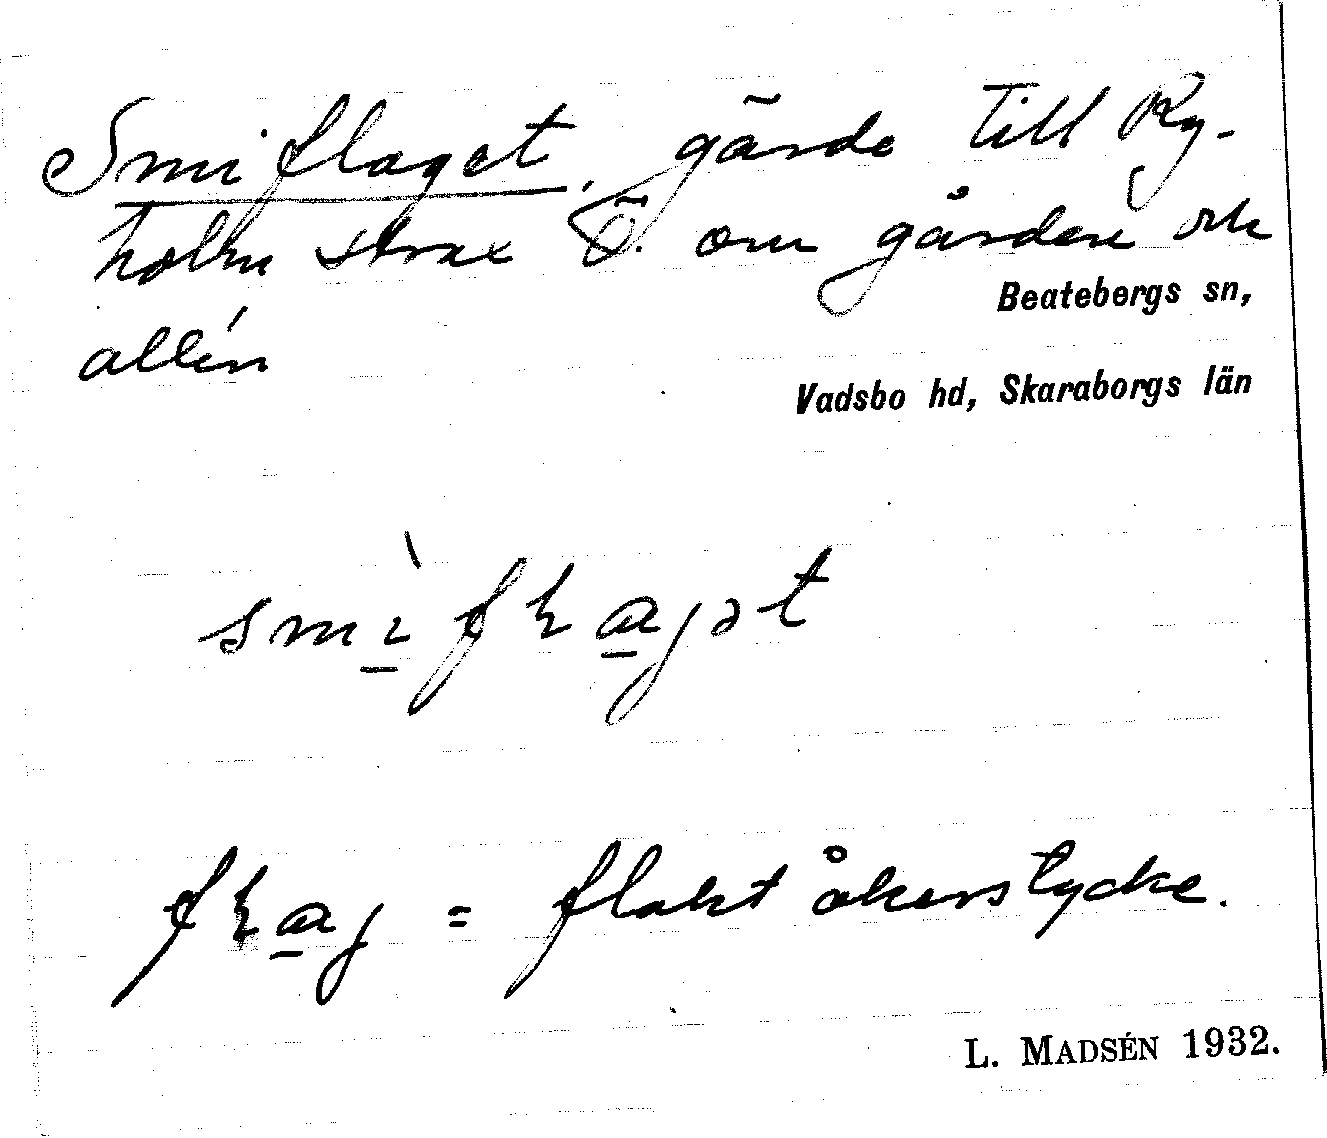 Smiflaget, gärde till Ry-
holm strax Ö. om gården och
allén
Beatebergs sn,
Vadsbo hd, Skaraborgs län
smı̀fɫajət
fɫaj = flakt åkerstycke.
L. MADSÉN 1932.